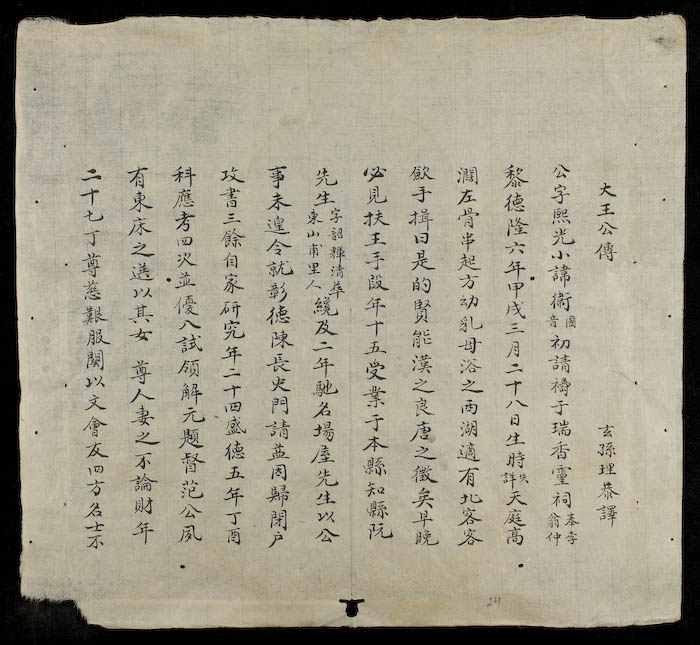 大王公傳
玄孫理恭譯
公字熙光小諱衛國音初請禱于瑞香靈祠奉李翁仲
黎德隆六年甲戌三月二十八日生時失詳天庭高
濶左骨串起方幼乳母浴之西湖適有北客客
飲手揖曰是的賢能漢之良唐之徵矣早晚
必見扶王手段年十五受業于本縣知縣阮
先生字韶釋清華東山甫里人纔及二年馳名場屋先生以公
事未遑令就彰德陳長史門請益因歸閉户
攻書三餘自家研究年二十四盛德五年丁酉
科應考四次並優入試領解元題督范公夙
有東床之選以其女 尊人妻之不論財年
二十七丁尊慈艱服闋以文會友四方名士不
24